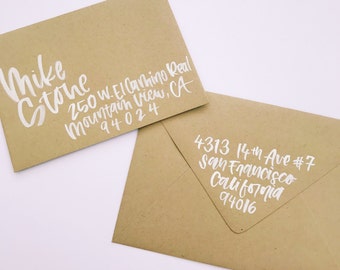 Mike
Stone
250 W. El Camino Real
Mountain View, CA
94024
4313 14th Ave #7
San Francisco
California
94016